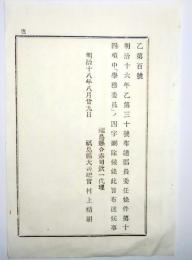 乙第百號
明治十六年乙第三十號布達郡區長委任條件第十
四項中學務委員ノ四字削除候條此旨布達候事
明治十八年八月廿九日
福島縣令赤司欽一代理
福島縣大書記官村上楯朝